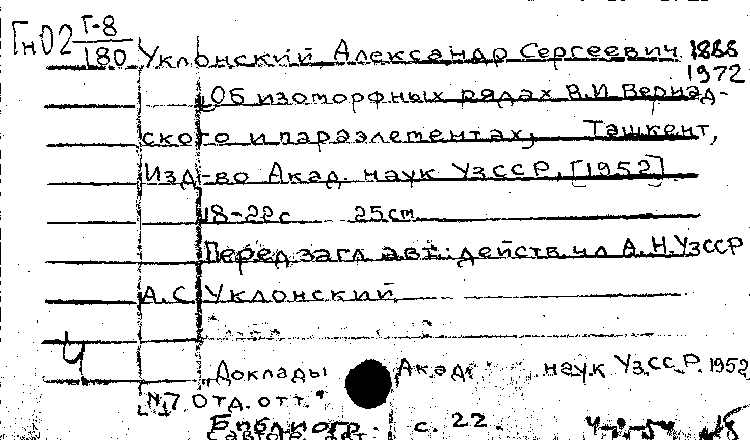 Гн02 Г-8/180 Уклонский, Александр Сергеевич 1888
1972
Об изоморфных рядах В.И Вернад-
ского и параэлементах, Ташкент,
Изд-во Акад. наук УзССР, [1952]
18-22с 25cm
Перед загл авт: действ. чл А.Н.УзССР
А.С Уклонский
Ч
"Доклады Акад. наук Уз.СС.Р. 1952
№7 отд. отт."
Библиогр. с. 22.